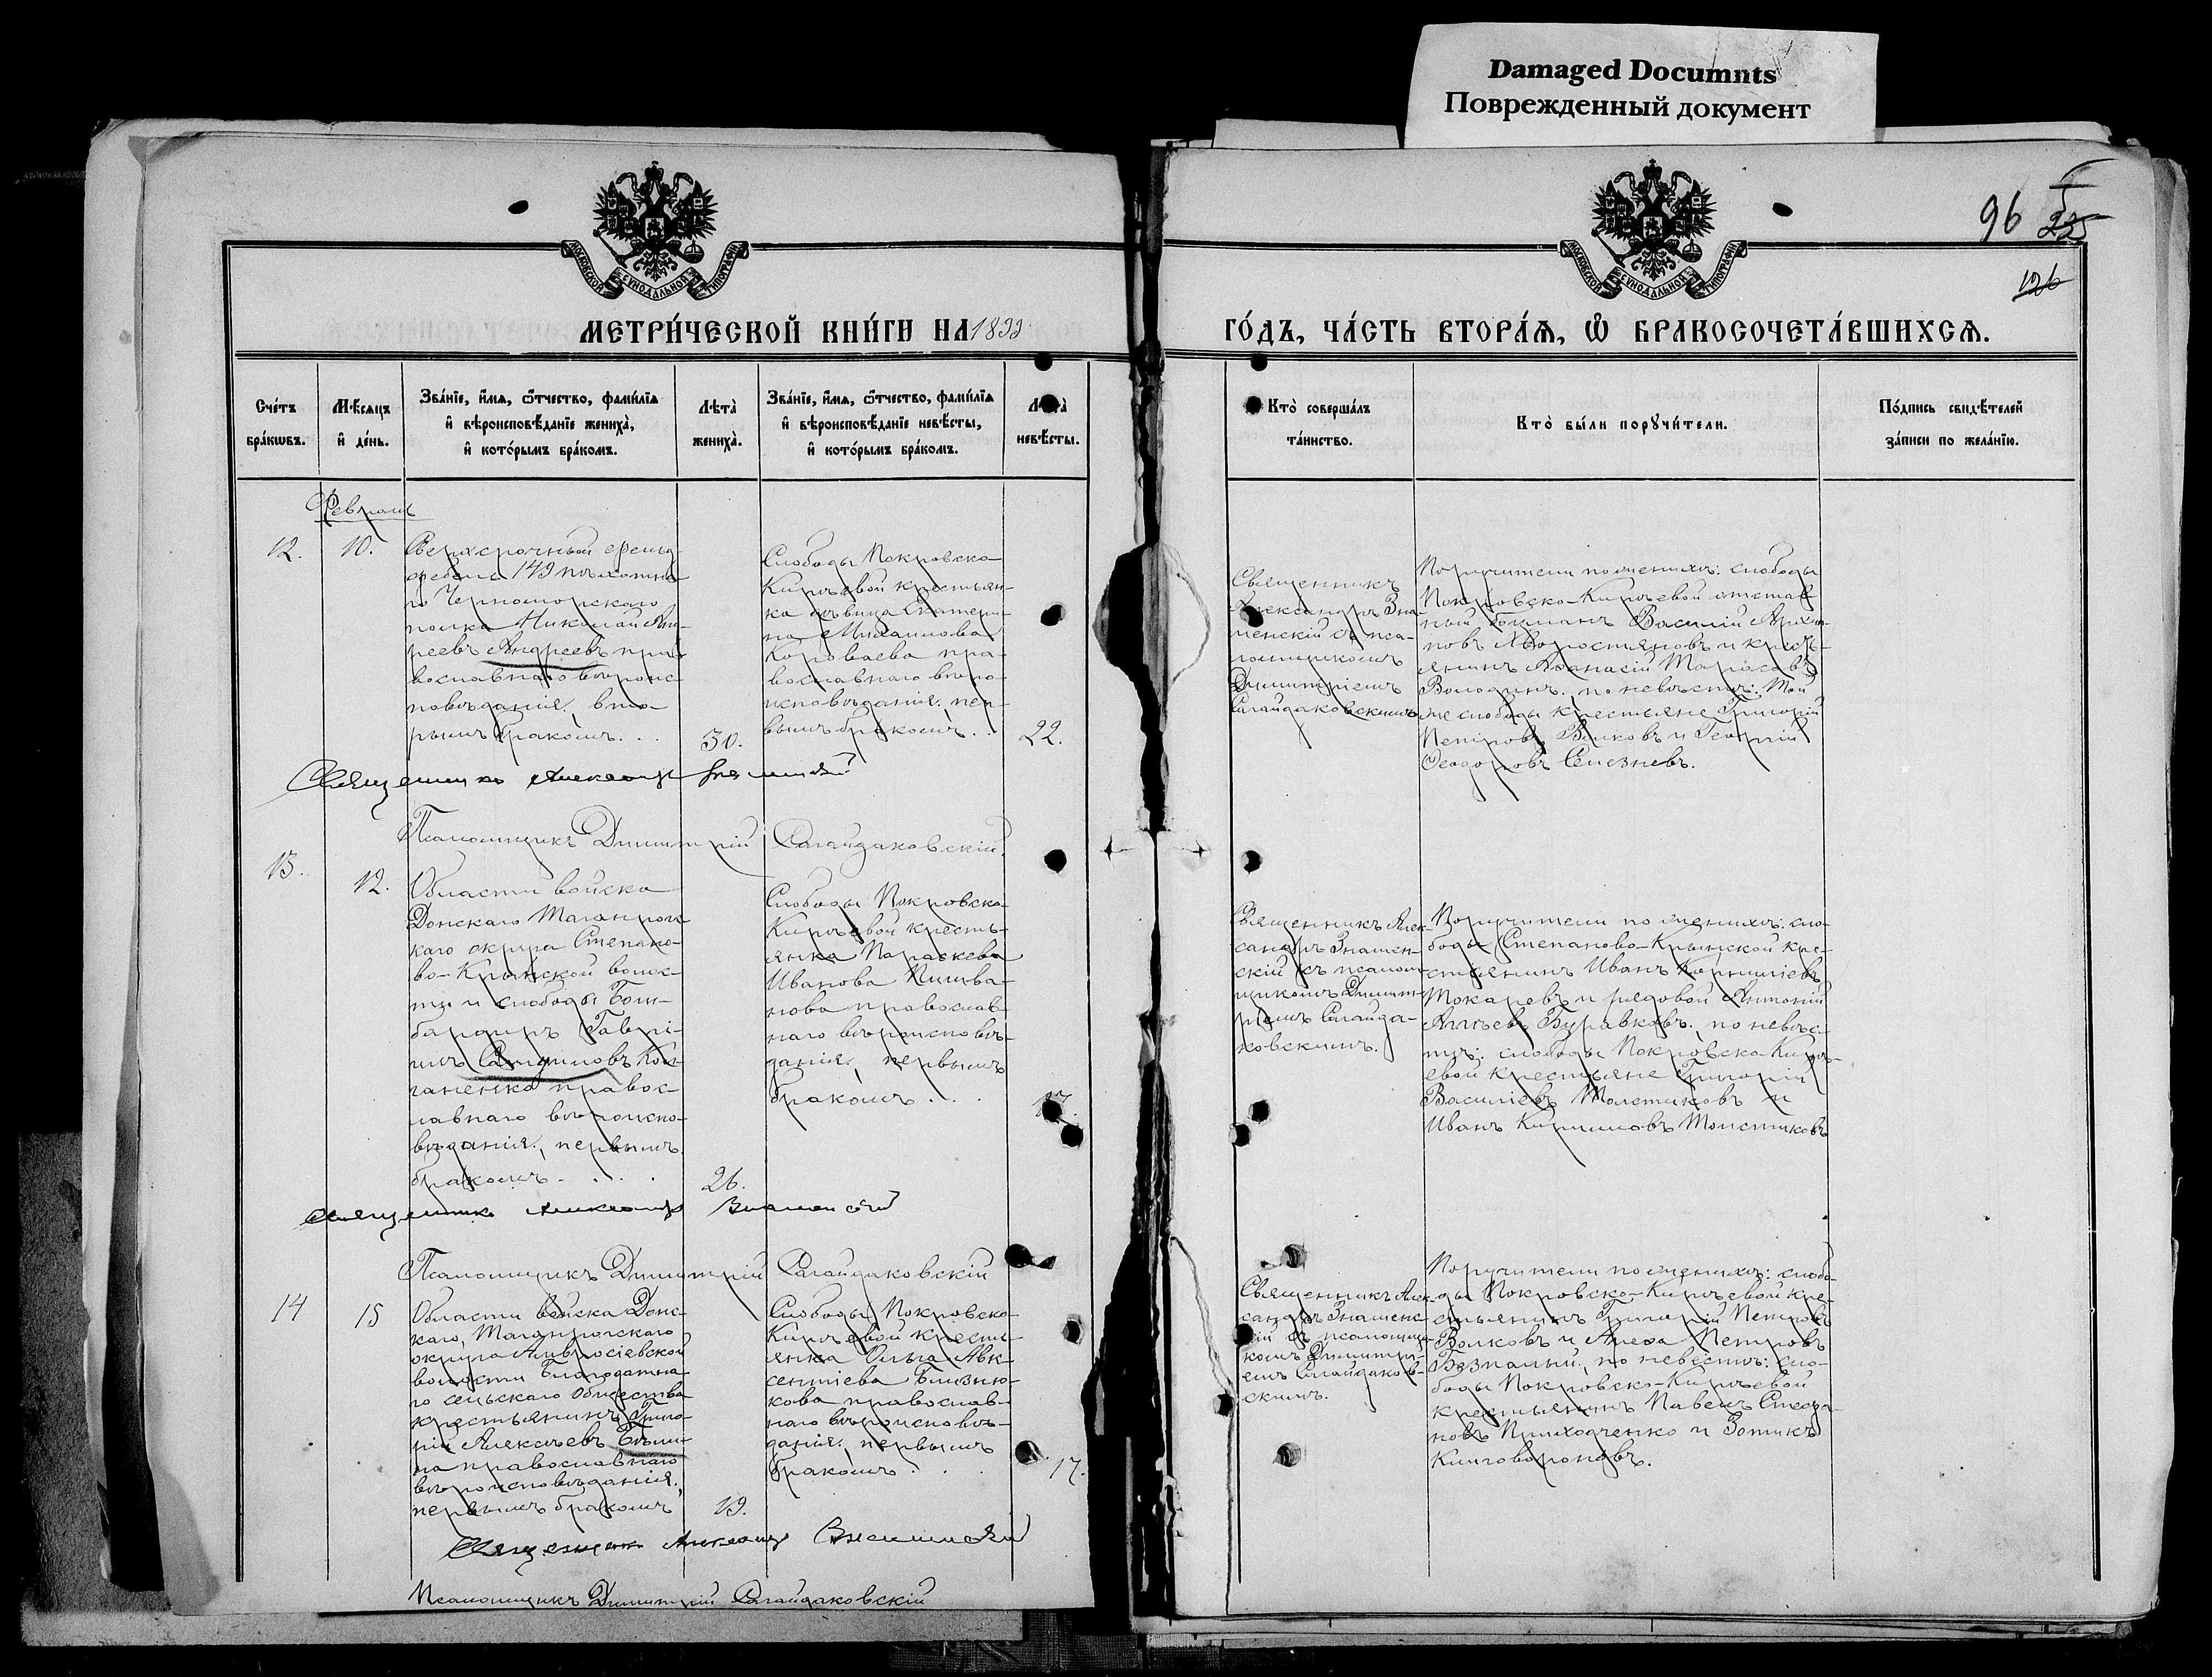 Damaged Documnts
Поврежденный документ
96
126
МОСКОВСКОЙ СѴНОДАЛЬНОЙ ТИПОГРАФІИ
МОСКОВСКОЙ СѴНОДАЛЬНОЙ ТИПОГРАФІИ
МЕТРИ́ЧЕСКОЙ КНИ́ГИ НА 1899
ГО́ДЪ, ЧА́СТЬ ВТОРА́Я, Ѡ БРАКОСОЧЕТА́ВШИХСЯ.
Сче́тъ
бра́кѡвъ.
Мѣ́сяцъ
и҆ де́нь.
Зва́нїе, и҆́мя, ѻ҆́тчество, фами́лїя
и҆ вѣроисповѣ́данїе жениха̀,
и҆ кото́рымъ бра́комъ.
Лѣта̀
жениха̀.
Зва́нїе, и҆́мя, ѻ҆́тчество, фами́лїя
и҆ вѣроисповѣ́данїе невѣ́сты,
и҆ кото́рымъ бра́комъ.
Лѣта̀
невѣ́сты.
Кто̀ соверша́лъ
та́инство.
Кто̀ бы́ли порꙋчи́тели.
По́дпись свидѣ́телей
за́писи по жела́нїю.
Февраль
12.
10.
Сверхсрочный фельд-
фебель 149 пѣхотна-
го Черноморскаго
полка Николай Анд-
реевъ Андреевъ пра-
вославнаго вѣроис-
повѣданія, вто-
рымъ бракомъ...
30.
Слободы Покровско-
Кирѣевой крестьян-
ка дѣвица Екатери-
на Михаилова
Короваева пра-
вославнаго вѣро-
исповѣданія, пер-
вымъ бракомъ..
22.
Священникъ
Александръ Зна-
менскій съ пса-
ломщикомъ
Димитріемъ
Сагайдаковскимъ
Поручители по женихѣ: слободы
Покровско-Кирѣевой отстав-
ный боцманъ Василій Архи-
повъ Хворостяновъ и кресть-
янинъ Афанасій Тарасовъ
Володинъ. по невѣстѣ: той
же слободы крестьяне Григорій
Петровъ Волковъ и Георгій
Ѳеодоровъ Селезневъ.
Священникъ Александръ Знаменскій
Псаломщикъ Димитрій Сагайдаковскій.
13.
12.
Области войска
Донскаго Таганрогс-
каго округа Степано-
во-Крынской волос-
ти и слободы Бом-
бардиръ Гаврі-
илъ Самуиловъ Кол-
ганенко правос-
лавнаго вѣроиспо-
вѣданія, первымъ
бракомъ....
26.
Слободы Покровско-
Кирѣевой кресть-
янка Параскева
Иванова
нова православ-
наго вѣроисповѣ-
данія, первымъ
бракомъ...
Священникъ Алек-
сандръ Знамен-
скій съ псалом-
щикомъ Димит-
ріемъ Сагайда-
ковскимъ.
Поручители по женихѣ: сло-
боды Степаново-Крынской кре-
стьянинъ Иванъ Корниліевъ
Токаревъ и рядовой Антоній
Буравковъ., по невѣс-
тѣ: слободы Покровско-Кирѣ-
евой крестьяне Григорій
Василіевъ Толстиковъ и
Иванъ Кирилловъ Толстиковъ
Священникъ Александръ Знаменскій
Псаломщикъ Димитрій Сагайдаковскій
14
15
Области войска Донс-
каго, Таганрогскаго
округа Амвросіевской
волости Благодатна-
го сельскаго Общества
крестьянинъ Григо-
рій Алексѣевъ
на православнаго
вѣроисповѣданія,
первымъ бракомъ
19.
Слободы Покровско-
Кирѣевой кресть-
янка Ольга Авк-
сентіева Близню-
кова православ-
наго вѣроисповѣ-
данія, первымъ
бракомъ...
17.
Священникъ Алек-
сандръ Знаменс-
кій съ псаломщи-
комъ Димитрі-
емъ Сагайдаков-
скимъ.
Поручители по женихѣ: слобо-
ды Покровско-Кирѣевой кре-
стьянинъ Григорій Петровъ
Волковъ и Петровъ
по невѣстѣ: сло-
боды Покровско-Кирѣевой
крестьянинъ Павелъ Стефа-
новъ Приходченко и Зотикъ
Книговороновъ.
Священникъ Александръ Знаменскій
Псаломщикъ Димитрій Сагайдаковскій